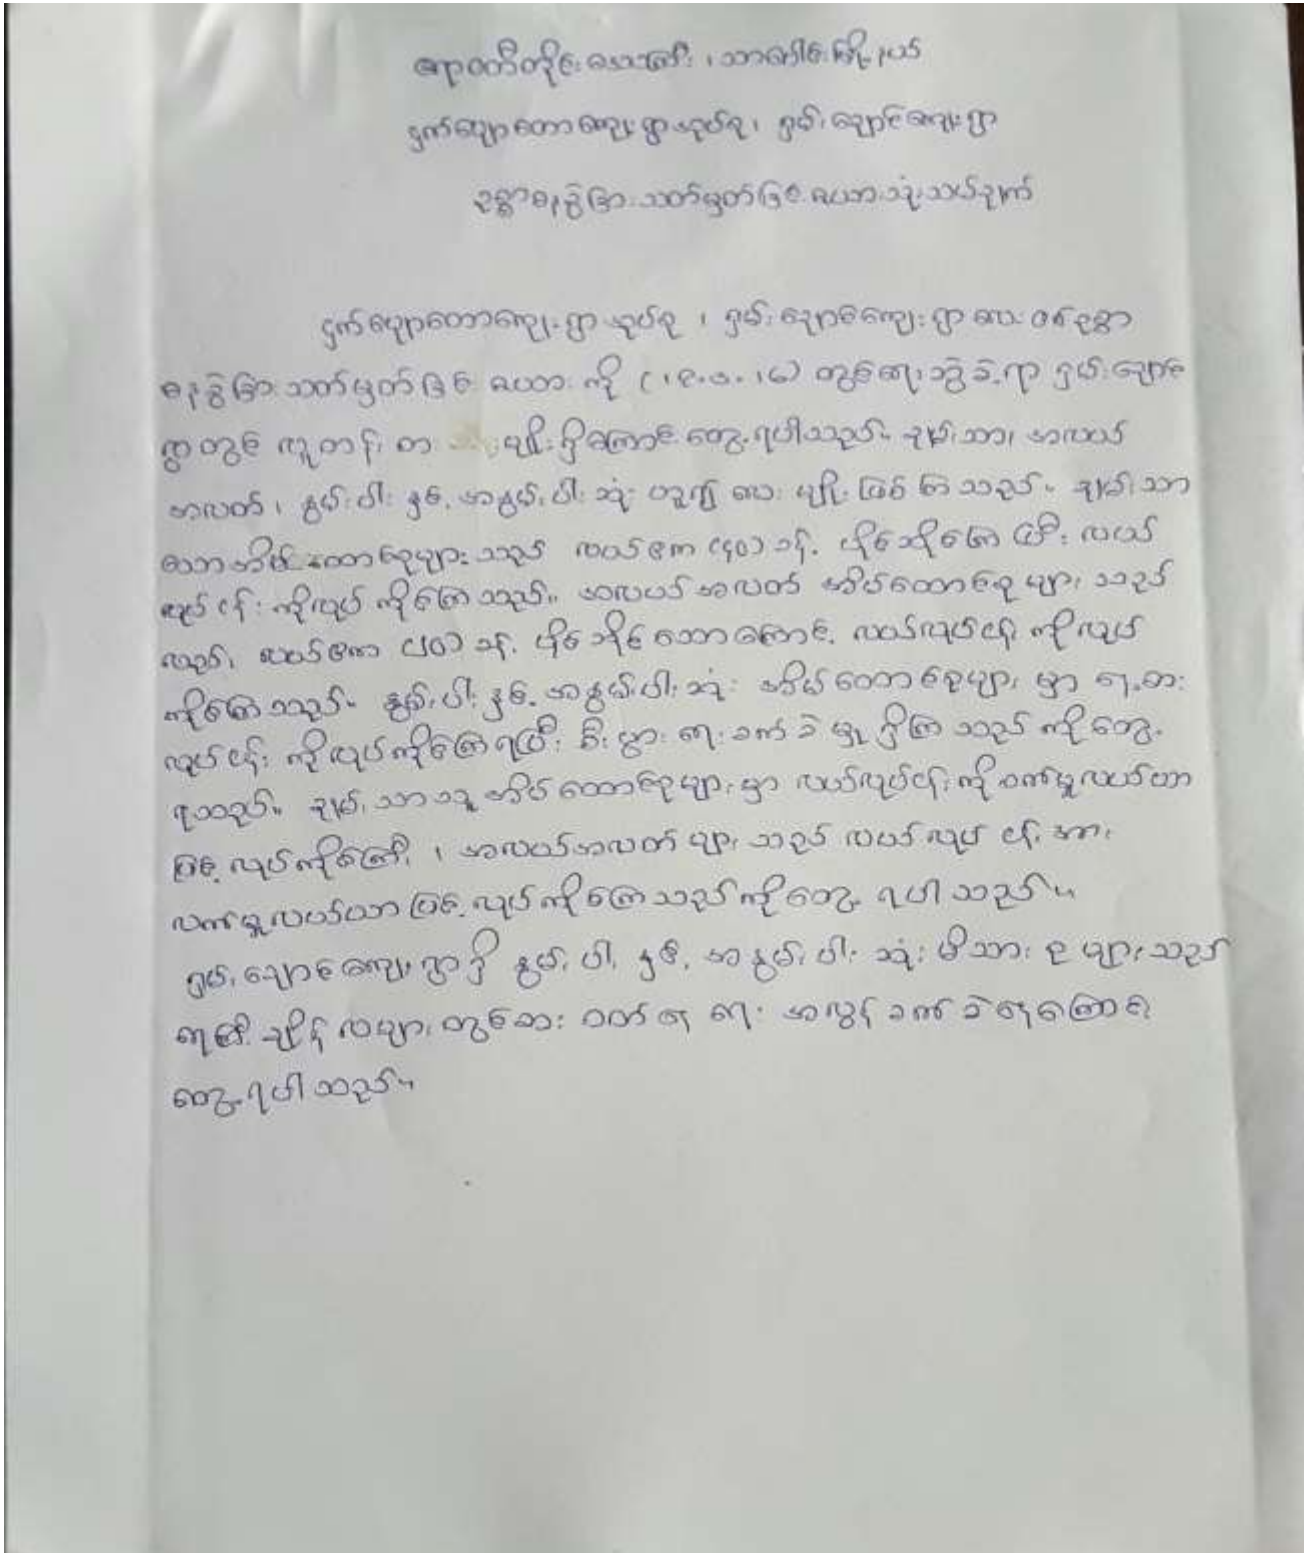 ဧရာဝတီတိုင်းဒေသကြီး ၊ သာပေါင်းမြို့နယ်
ငှက်ပျောတောကျေးရွာအုပ်စု ၊ ရှမ်းချောင်းကျေးရွာ
ဥစ္စာဓနခွဲခြားသတ်မှတ်ခြင်း ဇယားသုံးသပ်ချက်
ငှက်ပျောတောကျေးရွာအုပ်စု ၊ ရှမ်းချောင်းကျေးရွာလေး ဥစ္စာ
ဓနခွဲခြားသတ်မှတ်ခြင်း ဇယားကို ( ၊ ၆) တွင်ရေးဆွဲခဲ့ရာ ရှမ်းချောင်း
ရွာတွင် လူတန်းစား မျိုးရှိကြောင်း တွေ့ရပါသည်။ ချမ်းသာ၊ အလယ်
အလတ် ၊ နွမ်းပါး နှင့် အနွမ်းပါးဆုံး ဟူ၍ လေးမျိုး ဖြစ်ကြသည်။ ချမ်းသာ
သော အိမ်ထောင်စုများသည် လယ်ဧက (၄၀) ခန့် ပိုင်ဆိုင်ကြပြီး လယ်
လုပ်ငန်းကိုလုပ်ကိုင်ကြသည်။ အလယ်အလတ် အိမ်ထောင်စုများသည်
လည်း လယ်ဧက (၂၀) ခန့် ပိုင်ဆိုင်သောကြောင့် လယ်လုပ်ငန်းကိုလုပ်
ကိုင်ကြသည်။ နွမ်းပါးနှင့် အနွမ်းပါးဆုံး အိမ်ထောင်စုများမှာ ရေ့စား
လုပ်ငန်းကိုလုပ်ကိုင်ကြရပြီး စီးပွားရေးခက်ခဲမှုရှိကြသည်ကိုတွေ့
ရသည်။ ချမ်းသာသူအိမ်ထောင်စုများမှာ လယ်လုပ်ငန်းကိုစက်မှုလယ်ယာ
ဖြင့်လုပ်ကိုင်ကြပြီး ၊ အလယ်အလတ်များသည် လယ်လုပ်ငန်းအား
လက်မှုလယ်ယာဖြင့်လုပ်ကိုင်ကြသည်ကိုတွေ့ရပါသည်။
ရှမ်းချောင်းကျေးရွာရှိ နွမ်းပါးနှင့် အနွမ်းပါးဆုံး မိသားစုများသည်
ရေကြီးချိန်လများတွင်စား ဝတ်နေရေး အလွန်ခက်ခဲနေကြောင်း
တွေ့ရပါသည်။